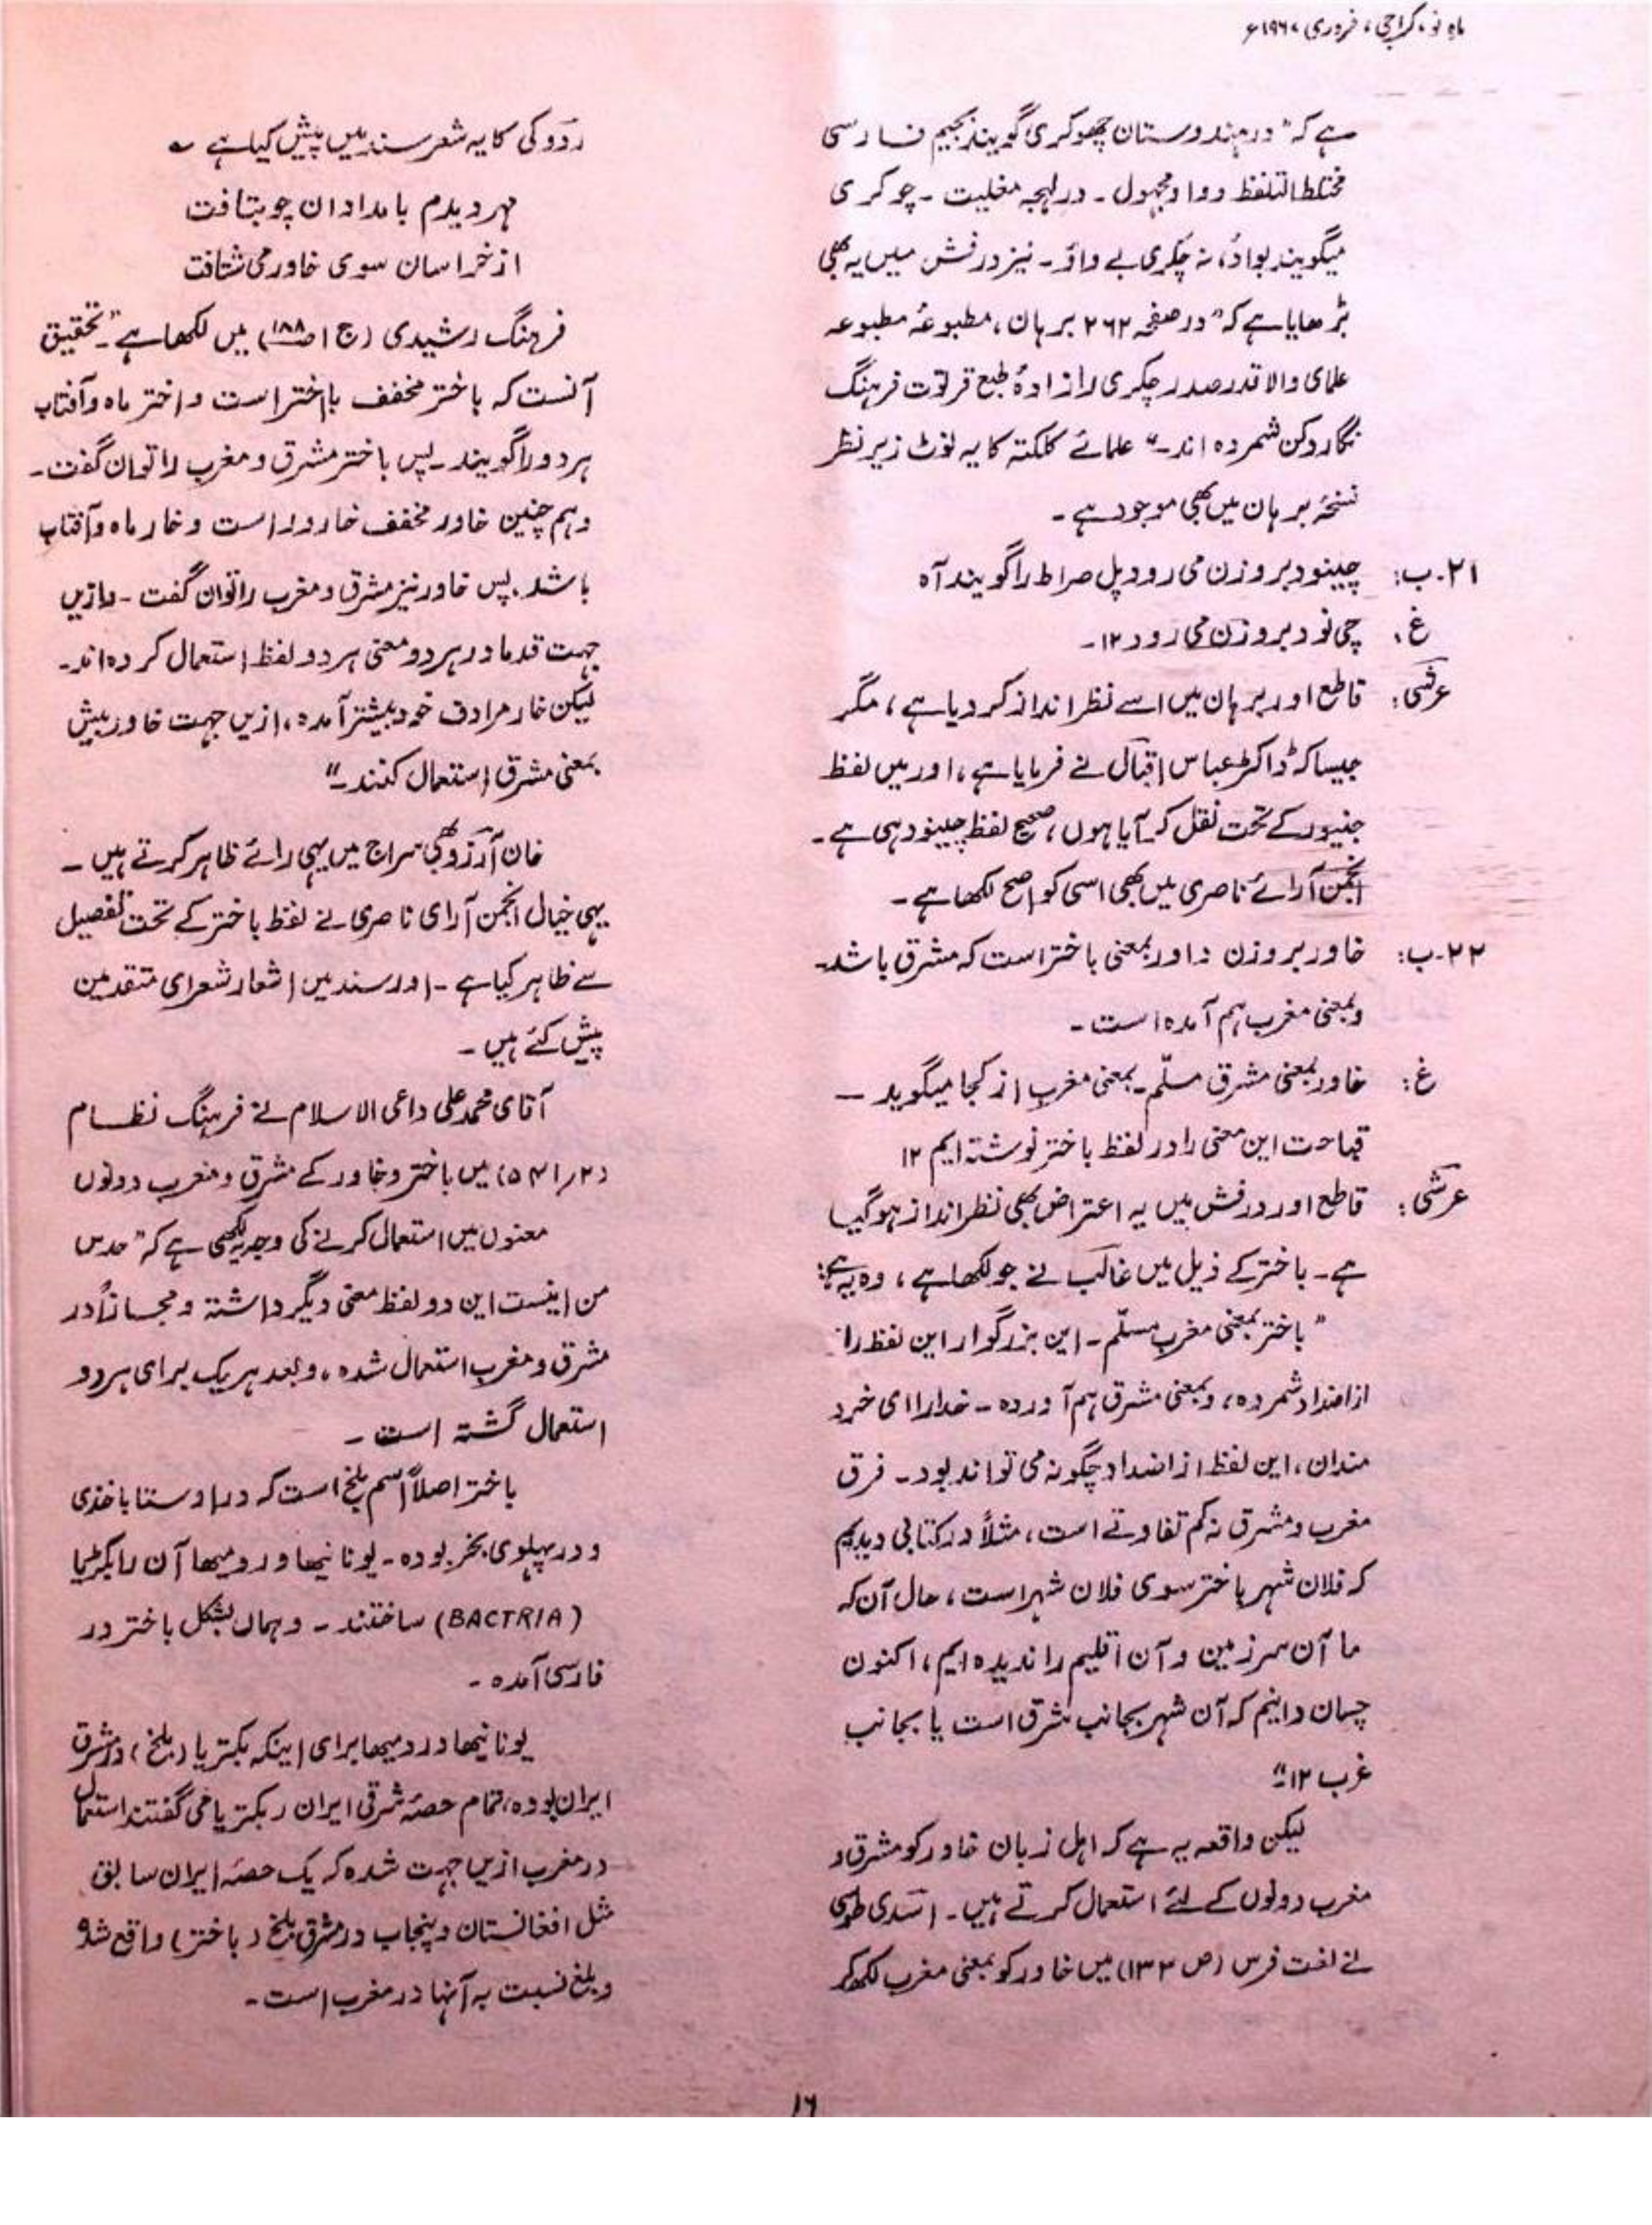 ماہ نو، کراچی، فروری ۱۹۶۷ء
ہے کہ "در ہندوستان چھوکری گویند بجیم فارسی
مختلط التلفظ و واو مجہول ۔ در لہجہ مغلیت ۔ چوکری
میگویند بواو، نہ چکری بے واؤ ۔ نیز درفش میں یہ بھی
بڑھایا ہے کہ "در صفحہ ۲۶۲ برہان، مطبوعۂ مطبوعہ
علمای والا قدر صدر چکری را زادۂ طبع قرتوت فرہنگ
نگار دکن شمردہ اند ۔" علمائے کلکتہ کا یہ نوٹ زیر نظر
نسخۂ برہان میں بھی موجود ہے ۔
۲۱۔ ب: چینود بروزن می رود پل صراط را گویند آہ
غ: چی نود بروزن می رود ۱۲۔
عرشی: قاطع اور برہان میں اسے نظر انداز کر دیا ہے، مگر
جیسا کہ ڈاکٹر عباس اقبال نے فرمایا ہے، اور میں لفظ
جنیور کے تحت نقل کر آیا ہوں، صحیح لفظ چینود ہی ہے ۔
انجمن آرائے ناصری میں بھی اسی کو اصح لکھا ہے ۔
۲۲۔ ب: خاور بروزن داور بمعنی باختر است کہ مشرق باشد۔
و بمعنی مغرب ہم آمدہ است ۔
غ: خاور بمعنی مشرق مسلّم ۔ بمعنی مغرب از کجا میگوید ۔
قباحت این معنی را در لفظ باختر نوشتہ ایم ۱۲
عرشی: قاطع اور درفش میں یہ اعتراض بھی نظر انداز ہو گیا
ہے ۔ باختر کے ذیل میں غالب نے جو لکھا ہے، وہ یہ ہے:
"باختر بمعنی مغرب مسلّم ۔ این بزرگوار این لفظ را
از اضداد شمردہ، و بمعنی مشرق ہم آوردہ ۔ خدارا ای خرد
مندان، این لفظ از اضداد چگونہ می تواند بود ۔ فرق
مغرب و مشرق نہ کم تفاوتے است، مثلاً در کتابی دیدیم
کہ فلان شہر باختر سوی فلان شہر است، حال آن کہ
ما آن سر زمین و آن اقلیم را ندیدہ ایم، اکنون
چسان دانیم کہ آن شہر بجانب شرق است یا بجانب
غرب ۱۲"
لیکن واقعہ یہ ہے کہ اہل زبان خاور کو مشرق و
مغرب دونوں کے لئے استعمال کرتے ہیں ۔ اسدی طوسی
نے لغت فرس (ص ۱۳۲) میں خاور کو بمعنی مغرب لکھ کر
رودکی کا یہ شعر سند میں پیش کیا ہے ؎
مہر دیدم بامدادان چو بتافت
از خراسان سوی خاور می شتافت
فرہنگ رشیدی (ج ۱ ص ۱۸۸) میں لکھا ہے "تحقیق
آنست کہ باختر مخفف با اختر است و اختر ماہ و آفتاب
ہر دو را گویند ۔ پس باختر مشرق و مغرب را توان گفت ۔
و ہم چنین خاور مخفف خارور است و خار ماہ و آفتاب
باشد ۔ پس خاور نیز مشرق و مغرب را توان گفت ۔ و ازیں
جہت قدما در ہر دو معنی ہر دو لفظ استعمال کردہ اند ۔
لیکن خار مرادف خود بیشتر آمدہ، ازیں جہت خاور بیش
بمعنی مشرق استعمال کنند ۔"
خان آرزو بھی سراج میں یہی رائے ظاہر کرتے ہیں ۔
یہی خیال انجمن آرای ناصری نے لفظ باختر کے تحت تفصیل
سے ظاہر کیا ہے ۔ اور سند میں اشعار شعرای متقدمین
پیش کئے ہیں ۔
آقای محمد علی داعی الاسلام نے فرہنگ نظام
(۵۴۱/۲) میں باختر و خاور کے مشرق و مغرب دونوں
معنوں میں استعمال کرنے کی وجہ یہ لکھی ہے کہ "حدس
من اینست این دو لفظ معنی دیگر داشتہ و مجازاً در
مشرق و مغرب استعمال شدہ، و بعد ہر یک برای ہر دو
استعمال گشتہ است ۔
باختر اصلاً اسم بلخ است کہ در اوستا باخذی
و در پہلوی بخر بودہ ۔ یونانیھا و رومیھا آن را بکٹریا
(BACTRIA) ساختند ۔ و ہماں بشکل باختر در
فارسی آمدہ ۔
یونانیھا و رومیھا برای اینکہ بکتریا (بلخ) در مشرق
ایران بودہ، تمام حصۂ شرقی ایران را بکتریا می گفتند استعمال
در مغرب ازیں جہت شدہ کہ یک حصۂ ایران سابق
مثل افغانستان و پنجاب در مشرق بلخ (باختر) واقع شدہ
و بلخ نسبت بہ آنہا در مغرب است ۔
۱۶